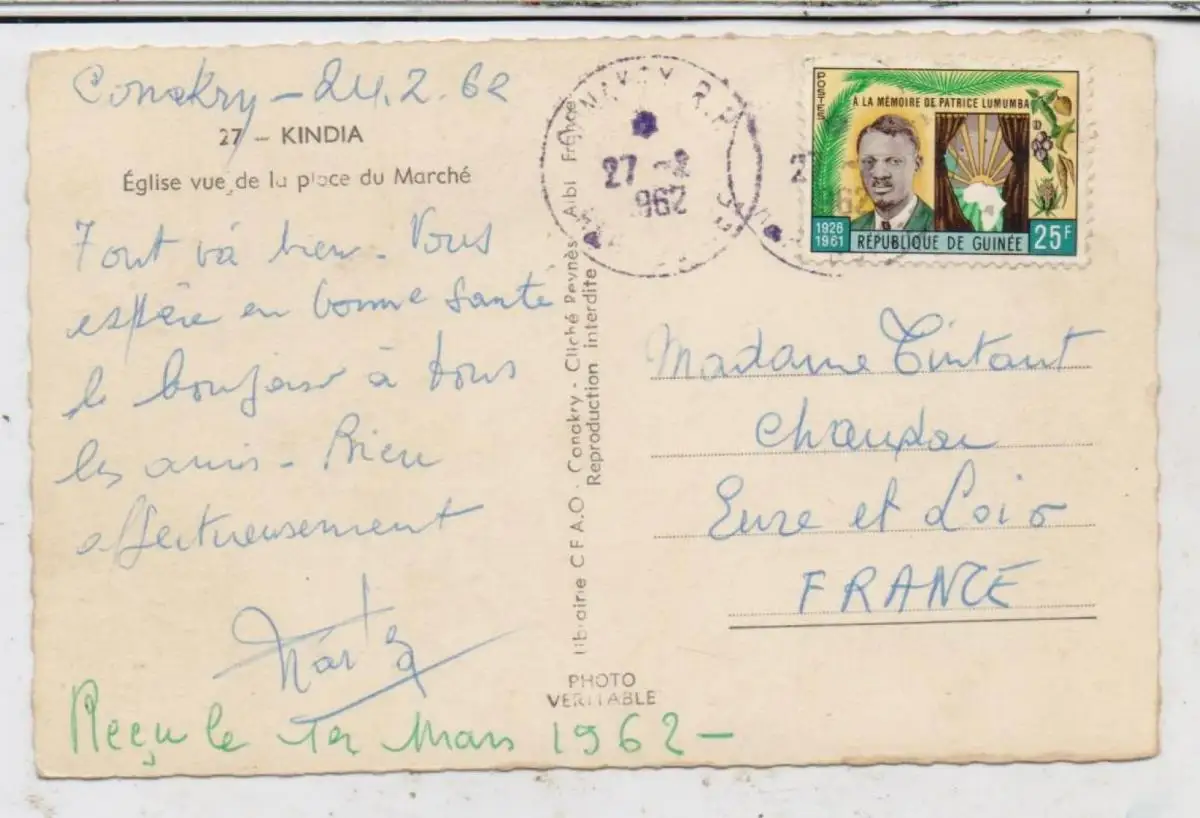 Conakry - 24.2.62
27 - KINDIA
Église vue de la place du Marché
Tout va bien. Vous
espère en bonne santé
le bonjour à tous
les amis - Bien
affectueusement
Reçu le 1er Mars 1962 -
Librairie C.F.A.O. - Conakry - Cliché Peynès Albi France
Reproduction interdite
PHOTO
VERITABLE
CONAKRY R.P.
27 -2
1962
POSTES
A LA MÉMOIRE DE PATRICE LUMUMBA
1926
1961
RÉPUBLIQUE DE GUINÉE
25F
Madame Tintant
Eure et Loir
FRANCE